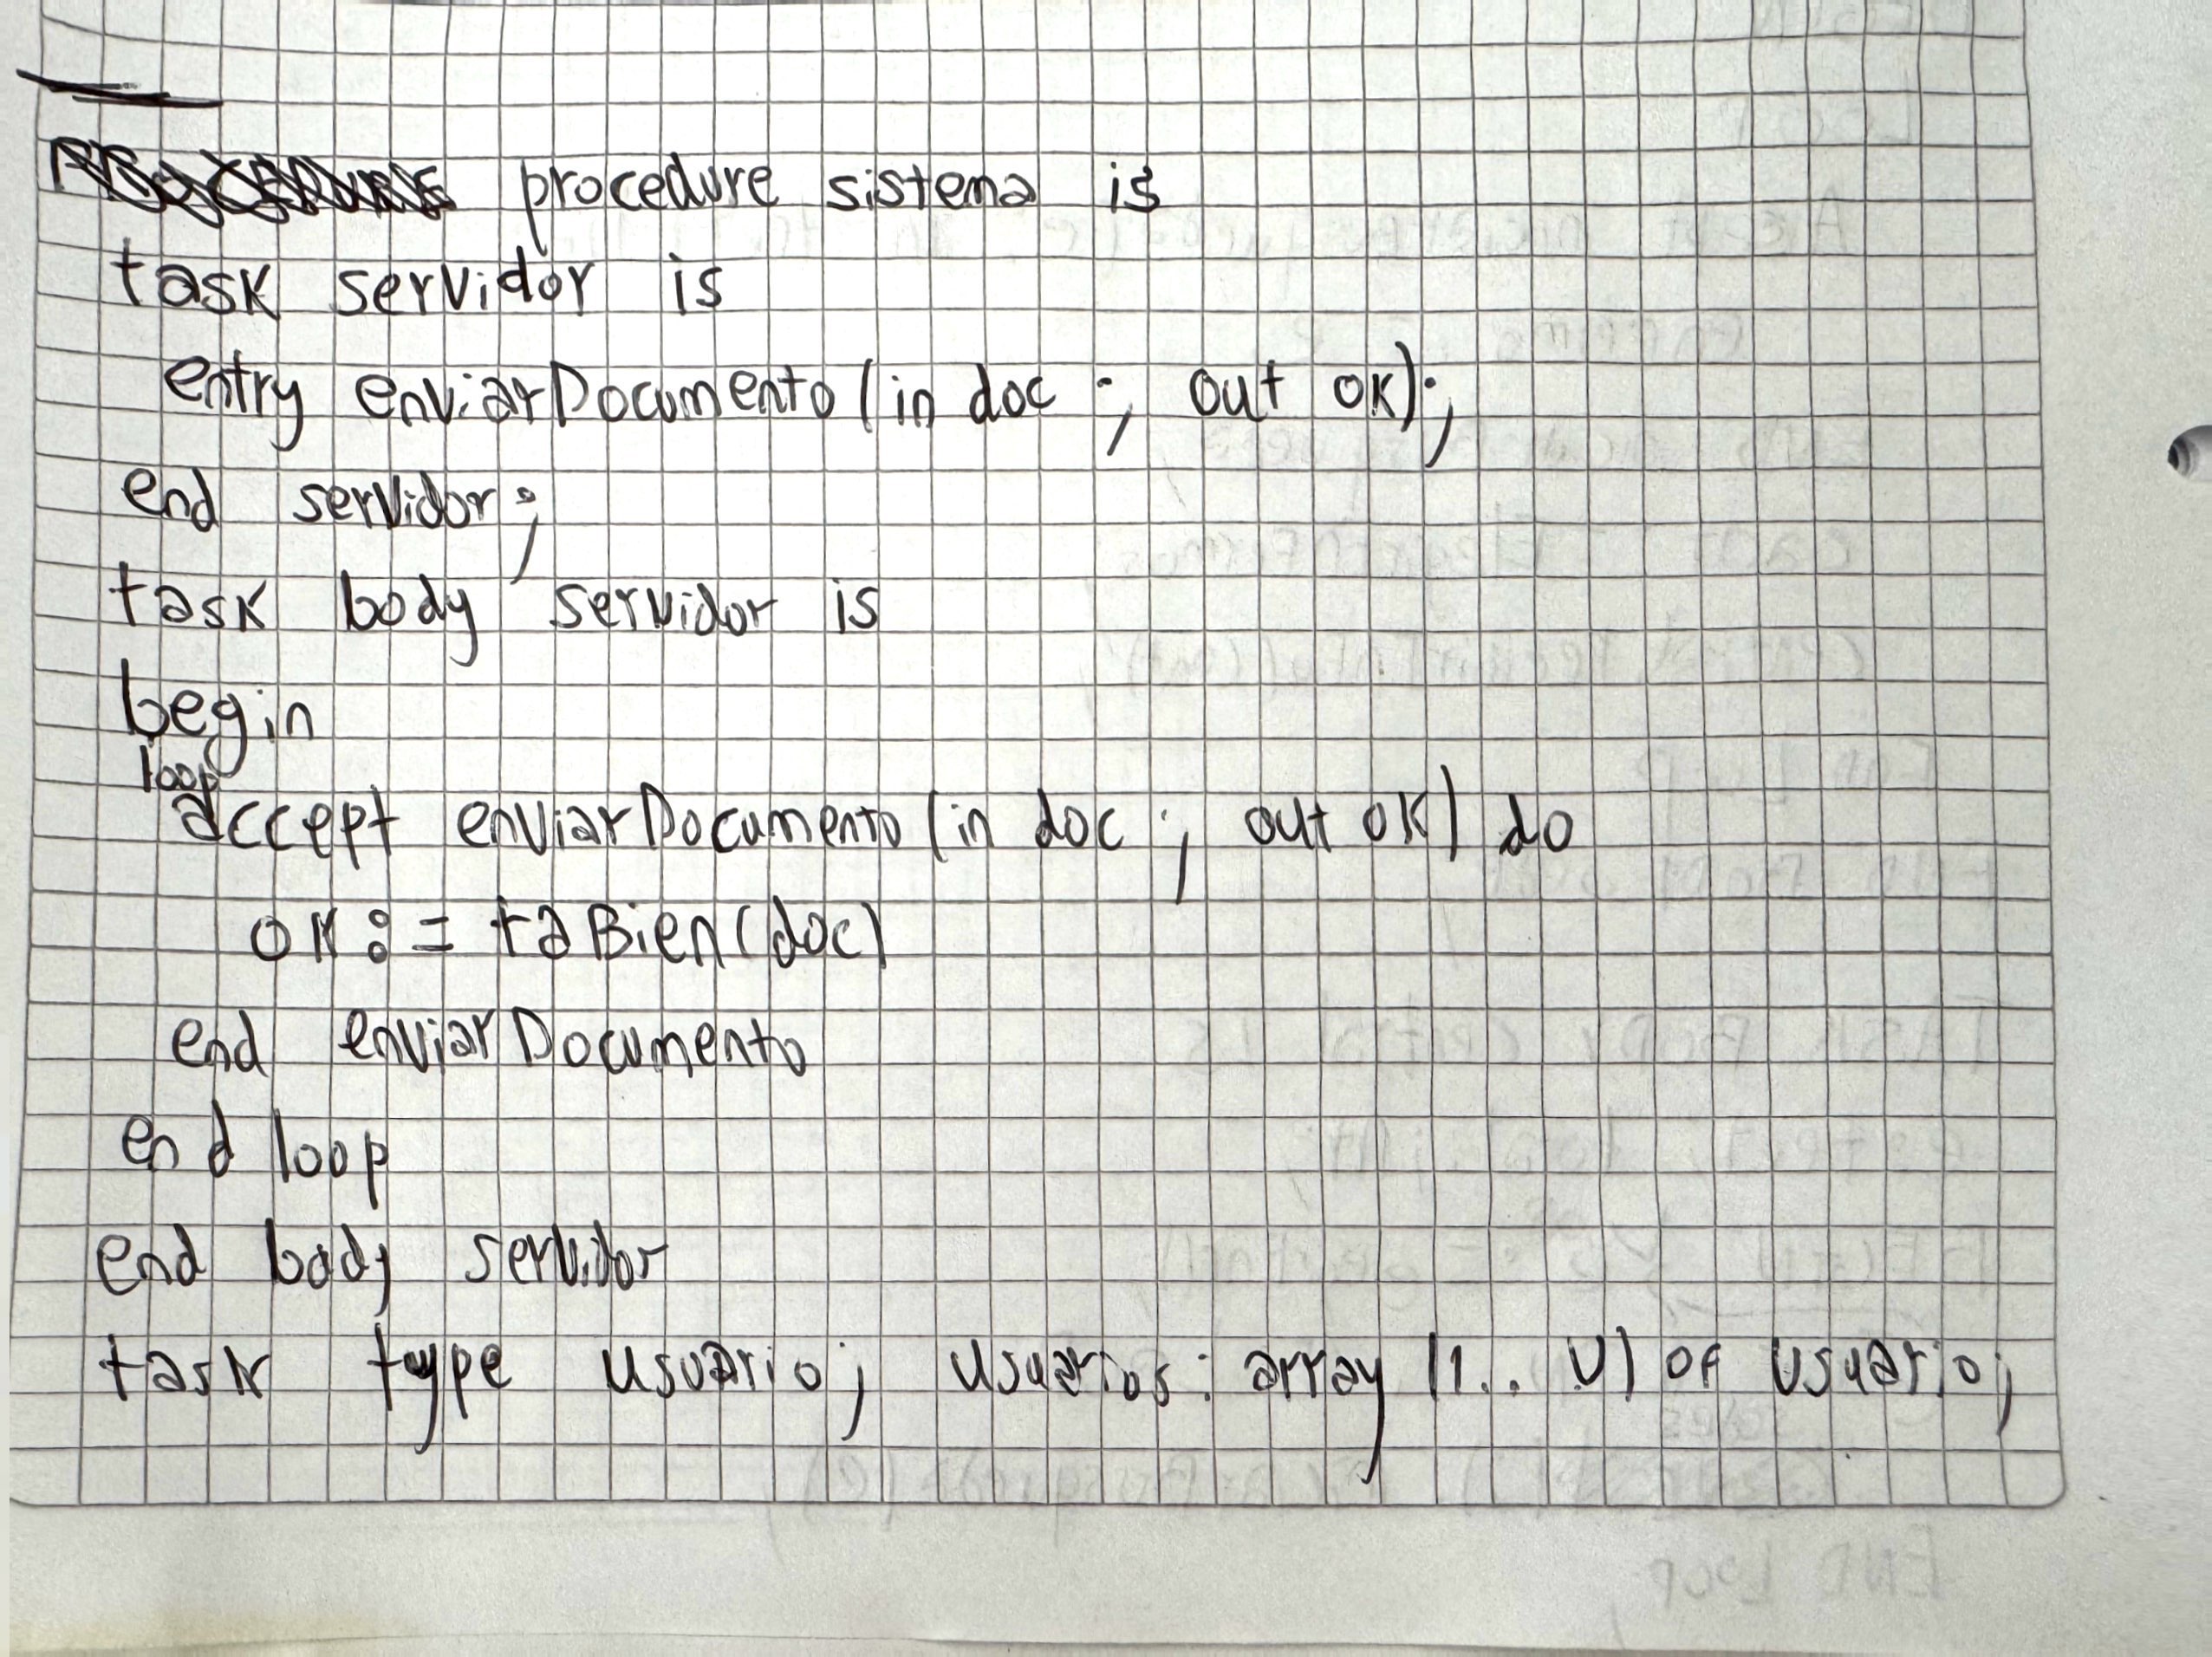 procedure sistema is
task servidor is
entry enviarDocumento (in doc ; out ok);
end servidor;
task body servidor is
begin
loop
accept enviarDocumento (in doc ; out ok) do
ok := taBien(doc)
end enviarDocumento
end loop
end body servidor
task type usuario; usuarios: array (1.. U) of usuario;